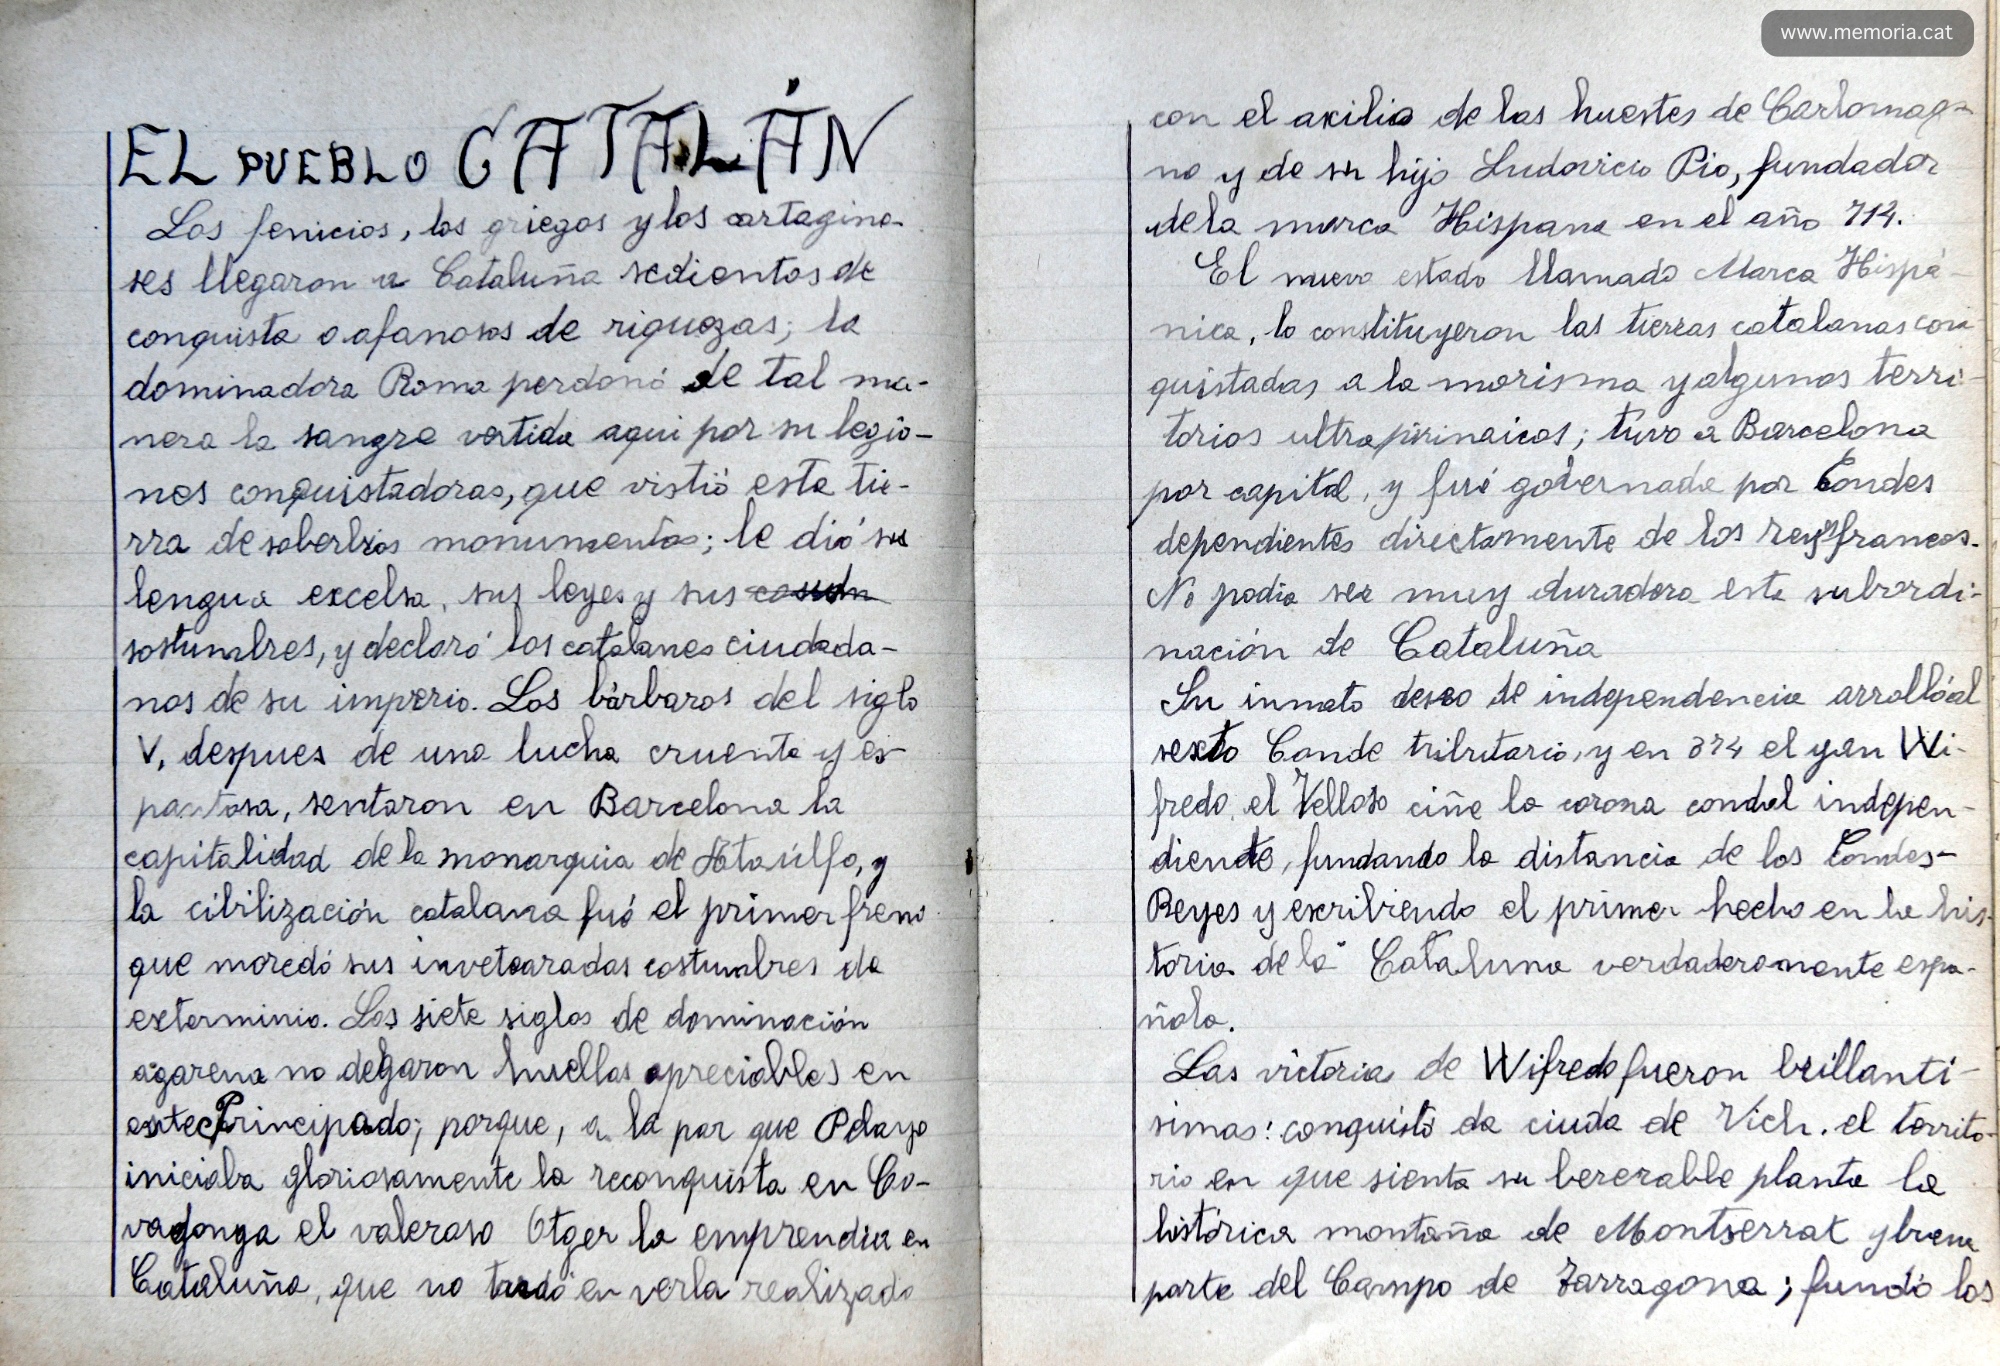 www.memoria.cat
EL PUEBLO CATALÁN
Los fenicios, los griegos y los cartagine-
ses llegaron a Cataluña sedientos de
conquista o afanosos de riquezas; la
dominadora Roma perdonó de tal ma-
nera la sangre vertida aqui por su legio-
nes conquistadoras, que vistió esta tie-
rra de soberbios monumentos; le dió sus
lengua excelsa, sus leyes y sus costum
sostumbres, y declaró los catalanes ciudada-
nos de su imperio. Los bárbaros del siglo
V, despues de una lucha cruenta y es-
pantosa, sentaron en Barcelona la
capitalidad de la monarquia de Ataúlfo, y
la cibilización catalana fué el primer freno
que moredó sus invetearadas costumbres de
exterminio. Los siete siglos de dominación
agarena no degaron huellas apreciables en
este Principado; porque, a la par que Pelayo
iniciaba gloriosamente la reconquista en Co-
vagonga el valeroso Otger la emprendia en
Cataluña, que no tardó en verla realizado
con el axilio de las huestes de Carlomag-
no y de su hijo Ludovico Pio, fundador
de la marca Hispana en el año 714.
El nuevo estado llamado Marca Hispá-
nica, lo constituyeron las tierras catalanas con-
quistadas a la morisma y algunos terri-
torios ultrapirinaicos; tuvo a Barcelona
por capital, y fué gobernada por Condes
dependientes directamente de los reyes francos.
No podia ser muy duradera esta subordi-
nación de Cataluña
Su innato deseo de independencia arrolló al
sexto Conde tributario, y en 874 el gan Wi-
fredo, el Velloso ciñe la corona condal indepen-
diente, fundando la distancia de los Condes-
Reyes y excribiendo el primer hecho en la his-
toria de la Cataluna verdaderamente espa-
ñola.
Las victoria de Wifredo fueron brillanti-
simas: conquistó da ciuda de Vich, el territo-
rio en que sienta su bererable planta la
histórica montaña de Montserrat y buena
parte del Campo de Tarragona; fundó los